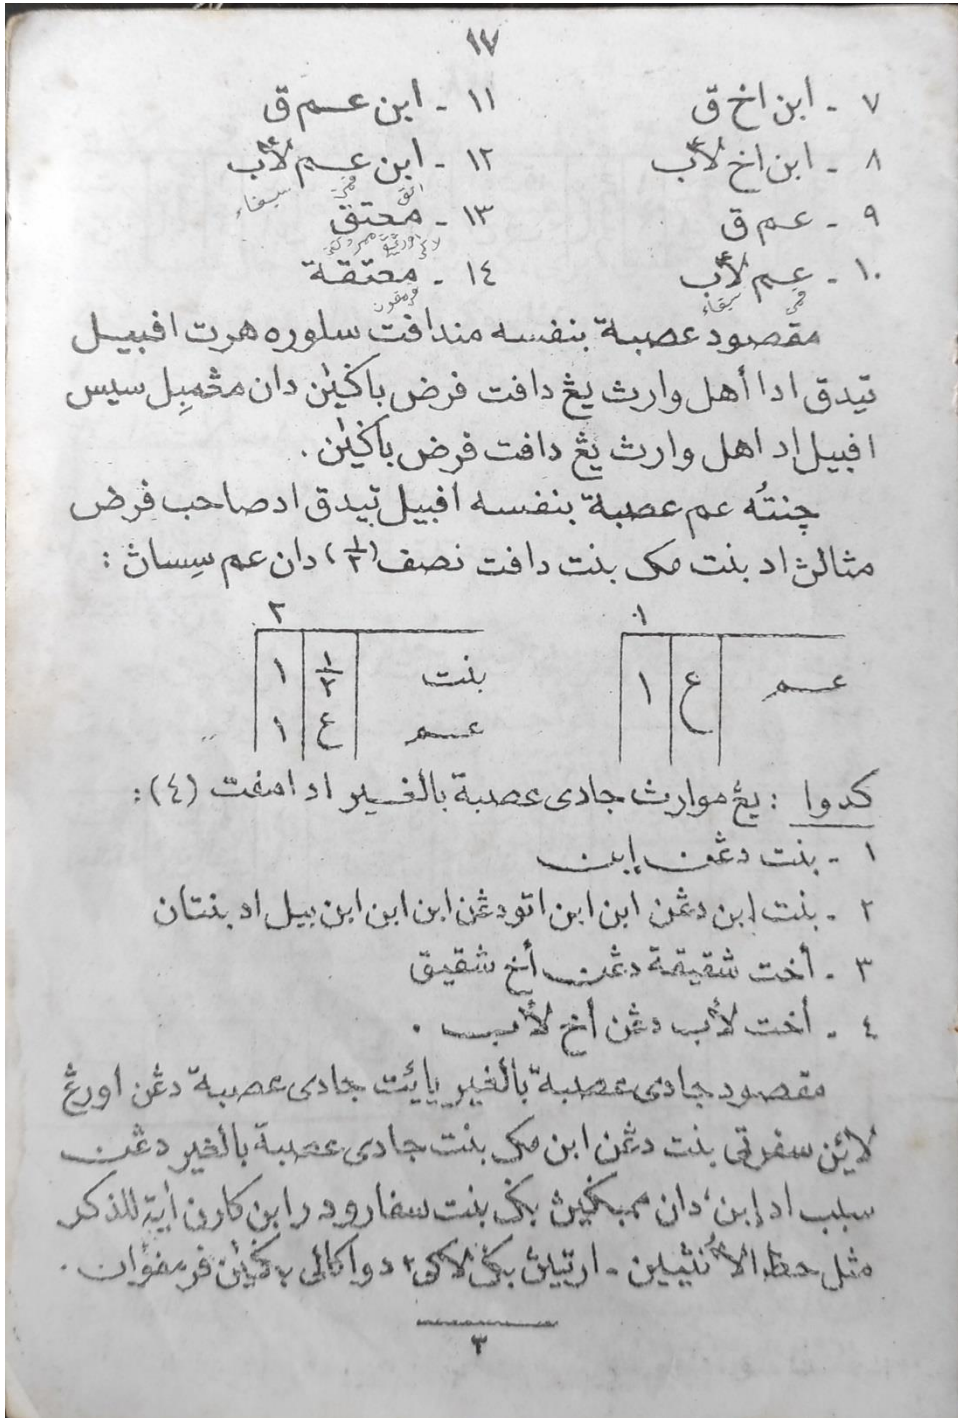 ١٧
٧ - ابن اخ ق
١١ - ابن عم ق
٨ - ابن اخ لأب
١٢ - ابن عم لأب
٩ - عم ق
١٣ - معتق
١٠ - عم لأب
١٤ - معتقة
مقصود عصبة بنفسه مندافت سلوره هرت افبيل
تيدق ادا أهل وارث يڠ دافت فرض باݢين دان مڠمبِل سيس
افبيل اد اهل وارث يڠ دافت فرض باݢين .
چنتُه عم عصبة بنفسه افبيل تيدق اد صاحب فرض
مثالڽ اد بنت مک بنت دافت نصف (١/٢) دان عم سِساڽ :
١
عم ع ١
٢
بنت ١/٢ ١
عم ع ١
كدوا : يڠ موارث جادى عصبة بالغير اد امفت (٤) :
١ - بنت دڠن إبن
٢ - بنت ابن دڠن ابن ابن اتو دڠن ابن ابن ابن بيل اد بنتان
٣ - أخت شقيقة دڠن أخ شقيق
٤ - أخت لأب دڠن أخ لأب .
مقصود جادى عصبة بالغير يائت جادى عصبة دڠن اورڠ
لائين سفرتي بنت دڠن ابن مک بنت جادى عصبة بالغير دڠن
سبب اد إبن، دان ممبݢيڽ بݢ بنت سفارو در ابن كارن أية للذكر
مثل حظ الأنثيين - ارتيڽ بݢ لاكى٢ دوا كالى بݢين فرمفوان .
٣